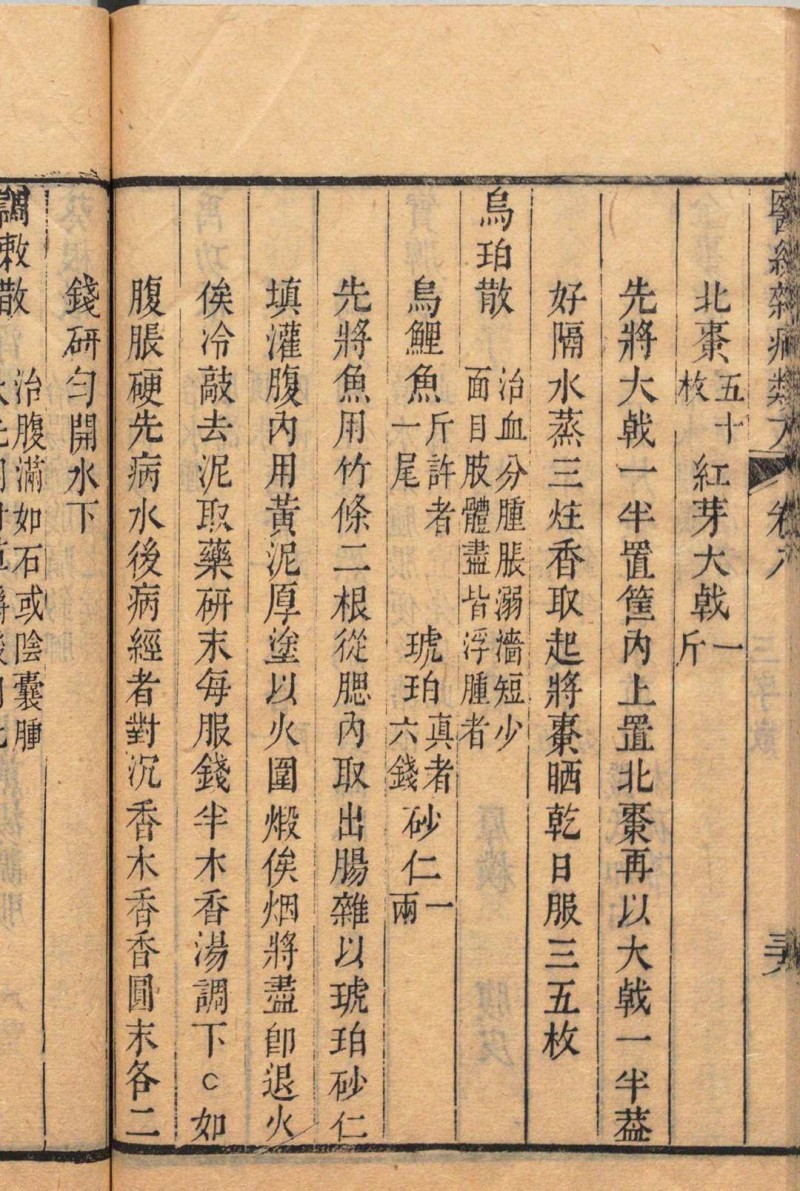 醫經類方 卷六
北棗五十枚 紅芽大戟一斤
先將大戟一半置筐內上置北棗再以大戟一半葢
好隔水蒸三炷香取起將棗晒乾日服三五枚
烏珀散 治血分腫脹溺濇短少面目肢體盡皆浮腫者
烏鯉魚斤許者一尾 琥珀真者六錢 砂仁一兩
先將魚用竹條二根從腮內取出腸雜以琥珀砂仁
填灌腹內用黃泥厚塗以火圍煅俟烟將盡卽退火
俟冷敲去泥取藥研末每服錢半木香湯調下c如
腹脹硬先病水後病經者對沉香木香香圓末各二
錢研勻開水下
調敕散 治腹滿如石或陰囊腫